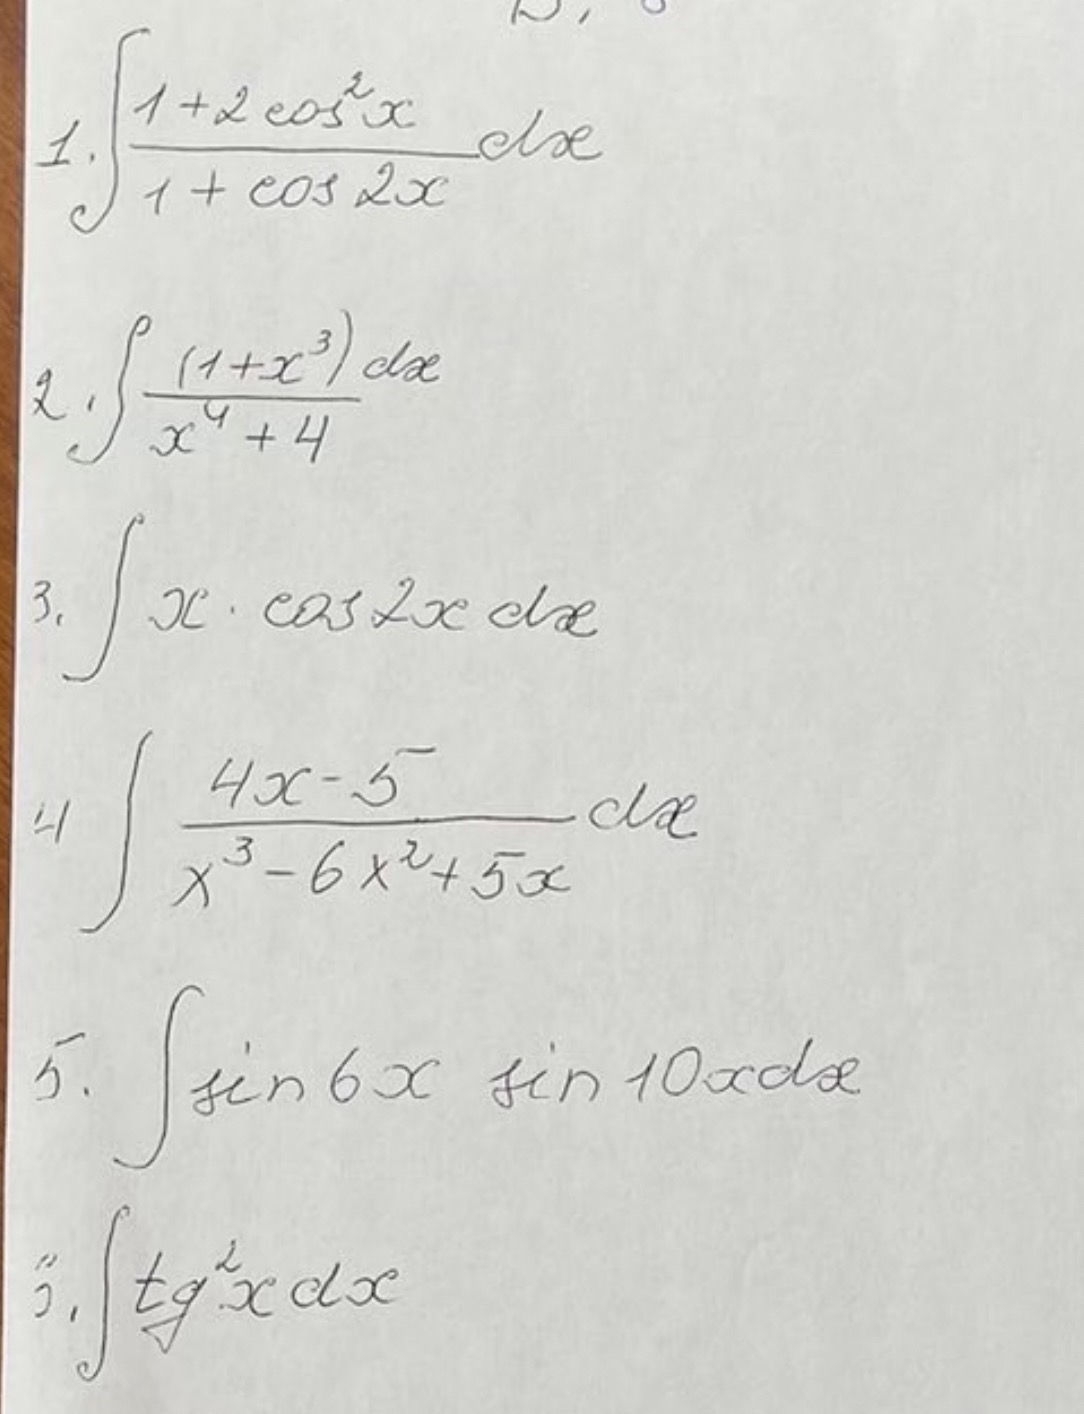 1. ∫ (1+2cos²x)/(1+cos2x) dx
2. ∫ (1+x³)dx/(x⁴+4)
3. ∫ x·cos2x dx
4 ∫ (4x-5)/(x³-6x²+5x) dx
5. ∫ sin6x sin10xdx
∫ tg²x dx